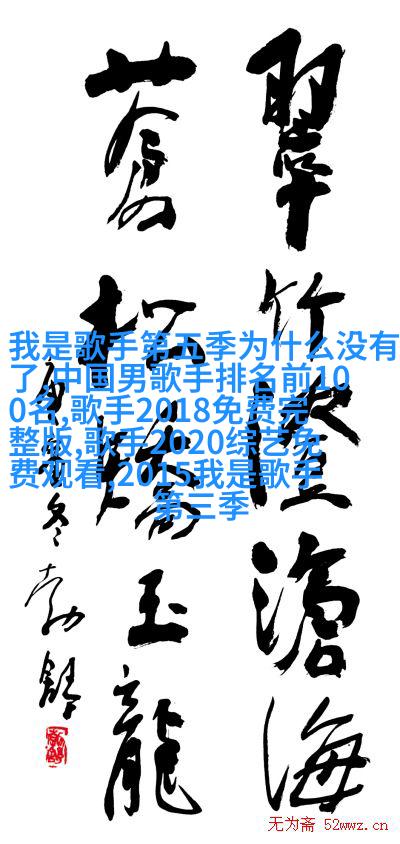 翠竹滄海
蒼松玉龍
冬勃舒
我是歌手第五季为什么没有
了,中国男歌手排名前10
0名,歌手2018免费完
整版,歌手2020综艺免
费观看,2015我是歌手
第三季
无为斋 52wwz.cn